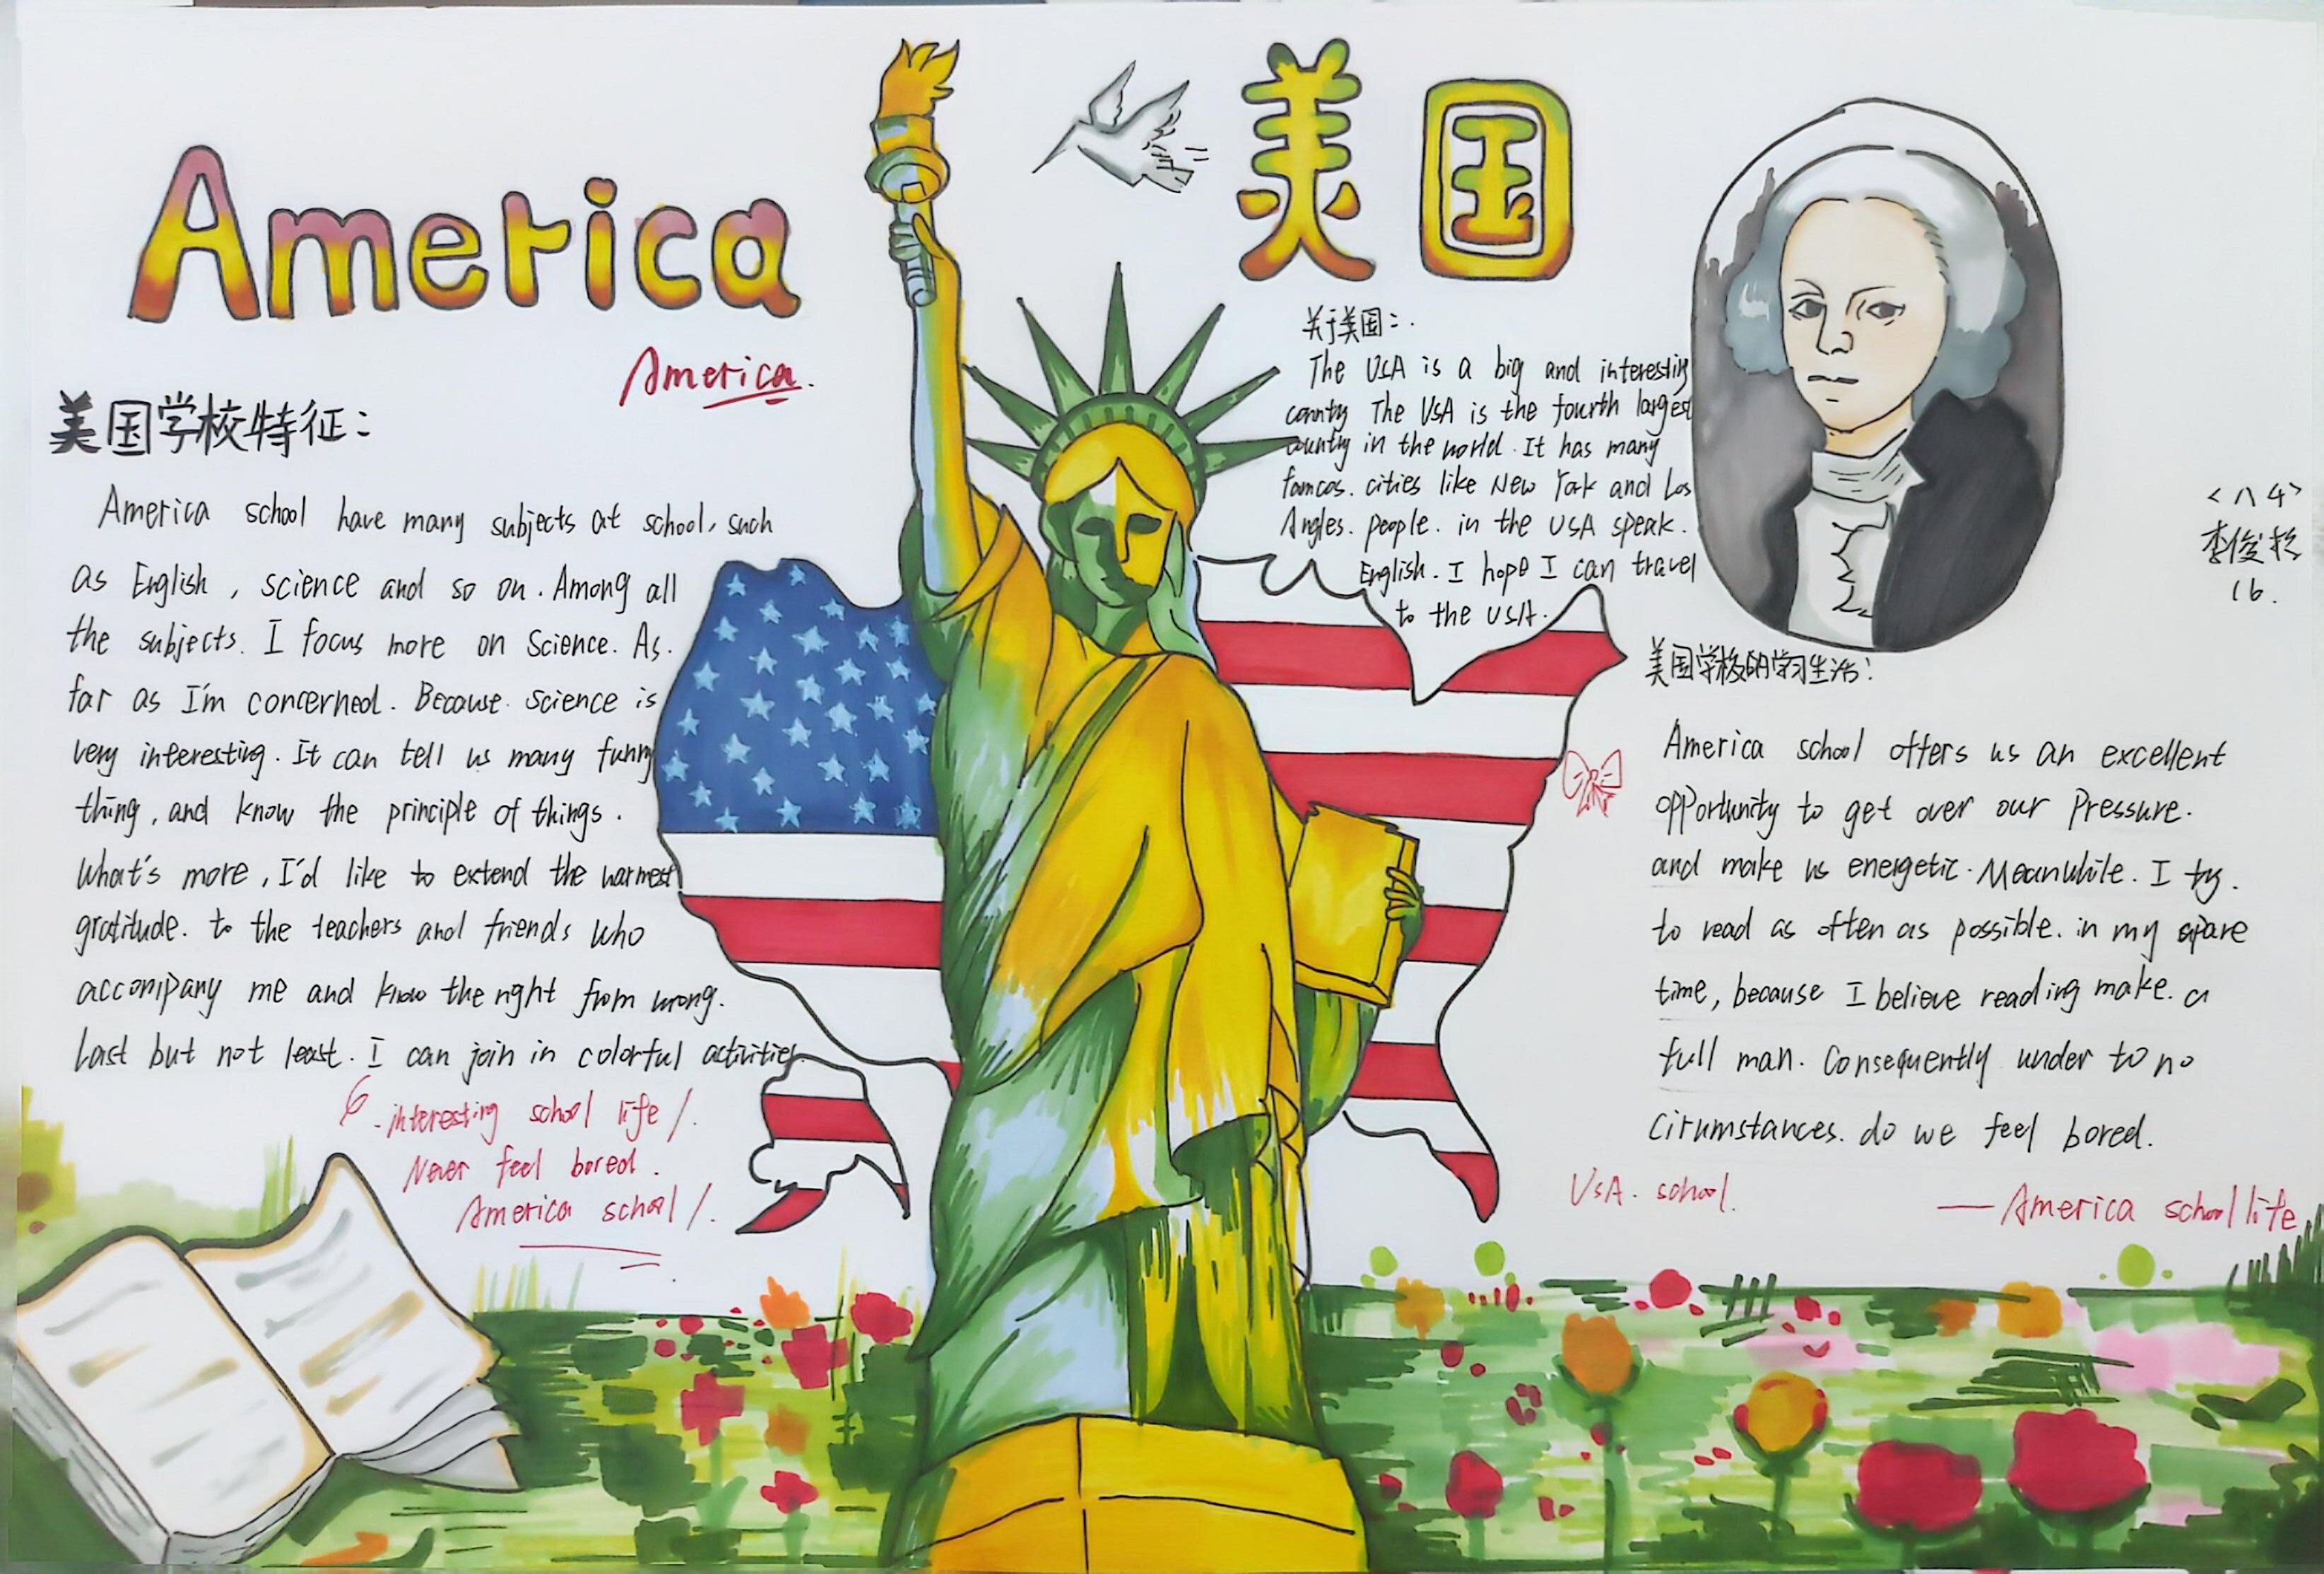 America
America.
美国学校特征：
America school have many subjects at school, such
as English , science and so on . Among all
the subjects. I focus more on Science. As.
far as I'm concerned. Because. science is
very interesting. It can tell us many funny
thing, and know the principle of things .
What's more , I'd like to extend the warmest
gratitude. to the teachers and friends who
accompany me and know the right from wrong.
Last but not least. I can join in colorful activities
interesting school life /.
Never feel bored .
America school /.
美国
关于美国：.
The USA is a big and interesting
county The USA is the fourth largest
country in the world. It has many
famcos. cities like New York and Los
Angles. people. in the USA speak.
English. I hope I can travel
to the USA.
<八4>
李俊
16.
美国学校的学习生活：
America school offers us an excellent
opportunity to get over our Pressure.
and make us energetic. Meanwhile. I try.
to read as often as possible. in my spare
time, because I believe reading make. a
full man. Consequently under to no
Cirumstances. do we feel bored.
USA. school.
—America school life